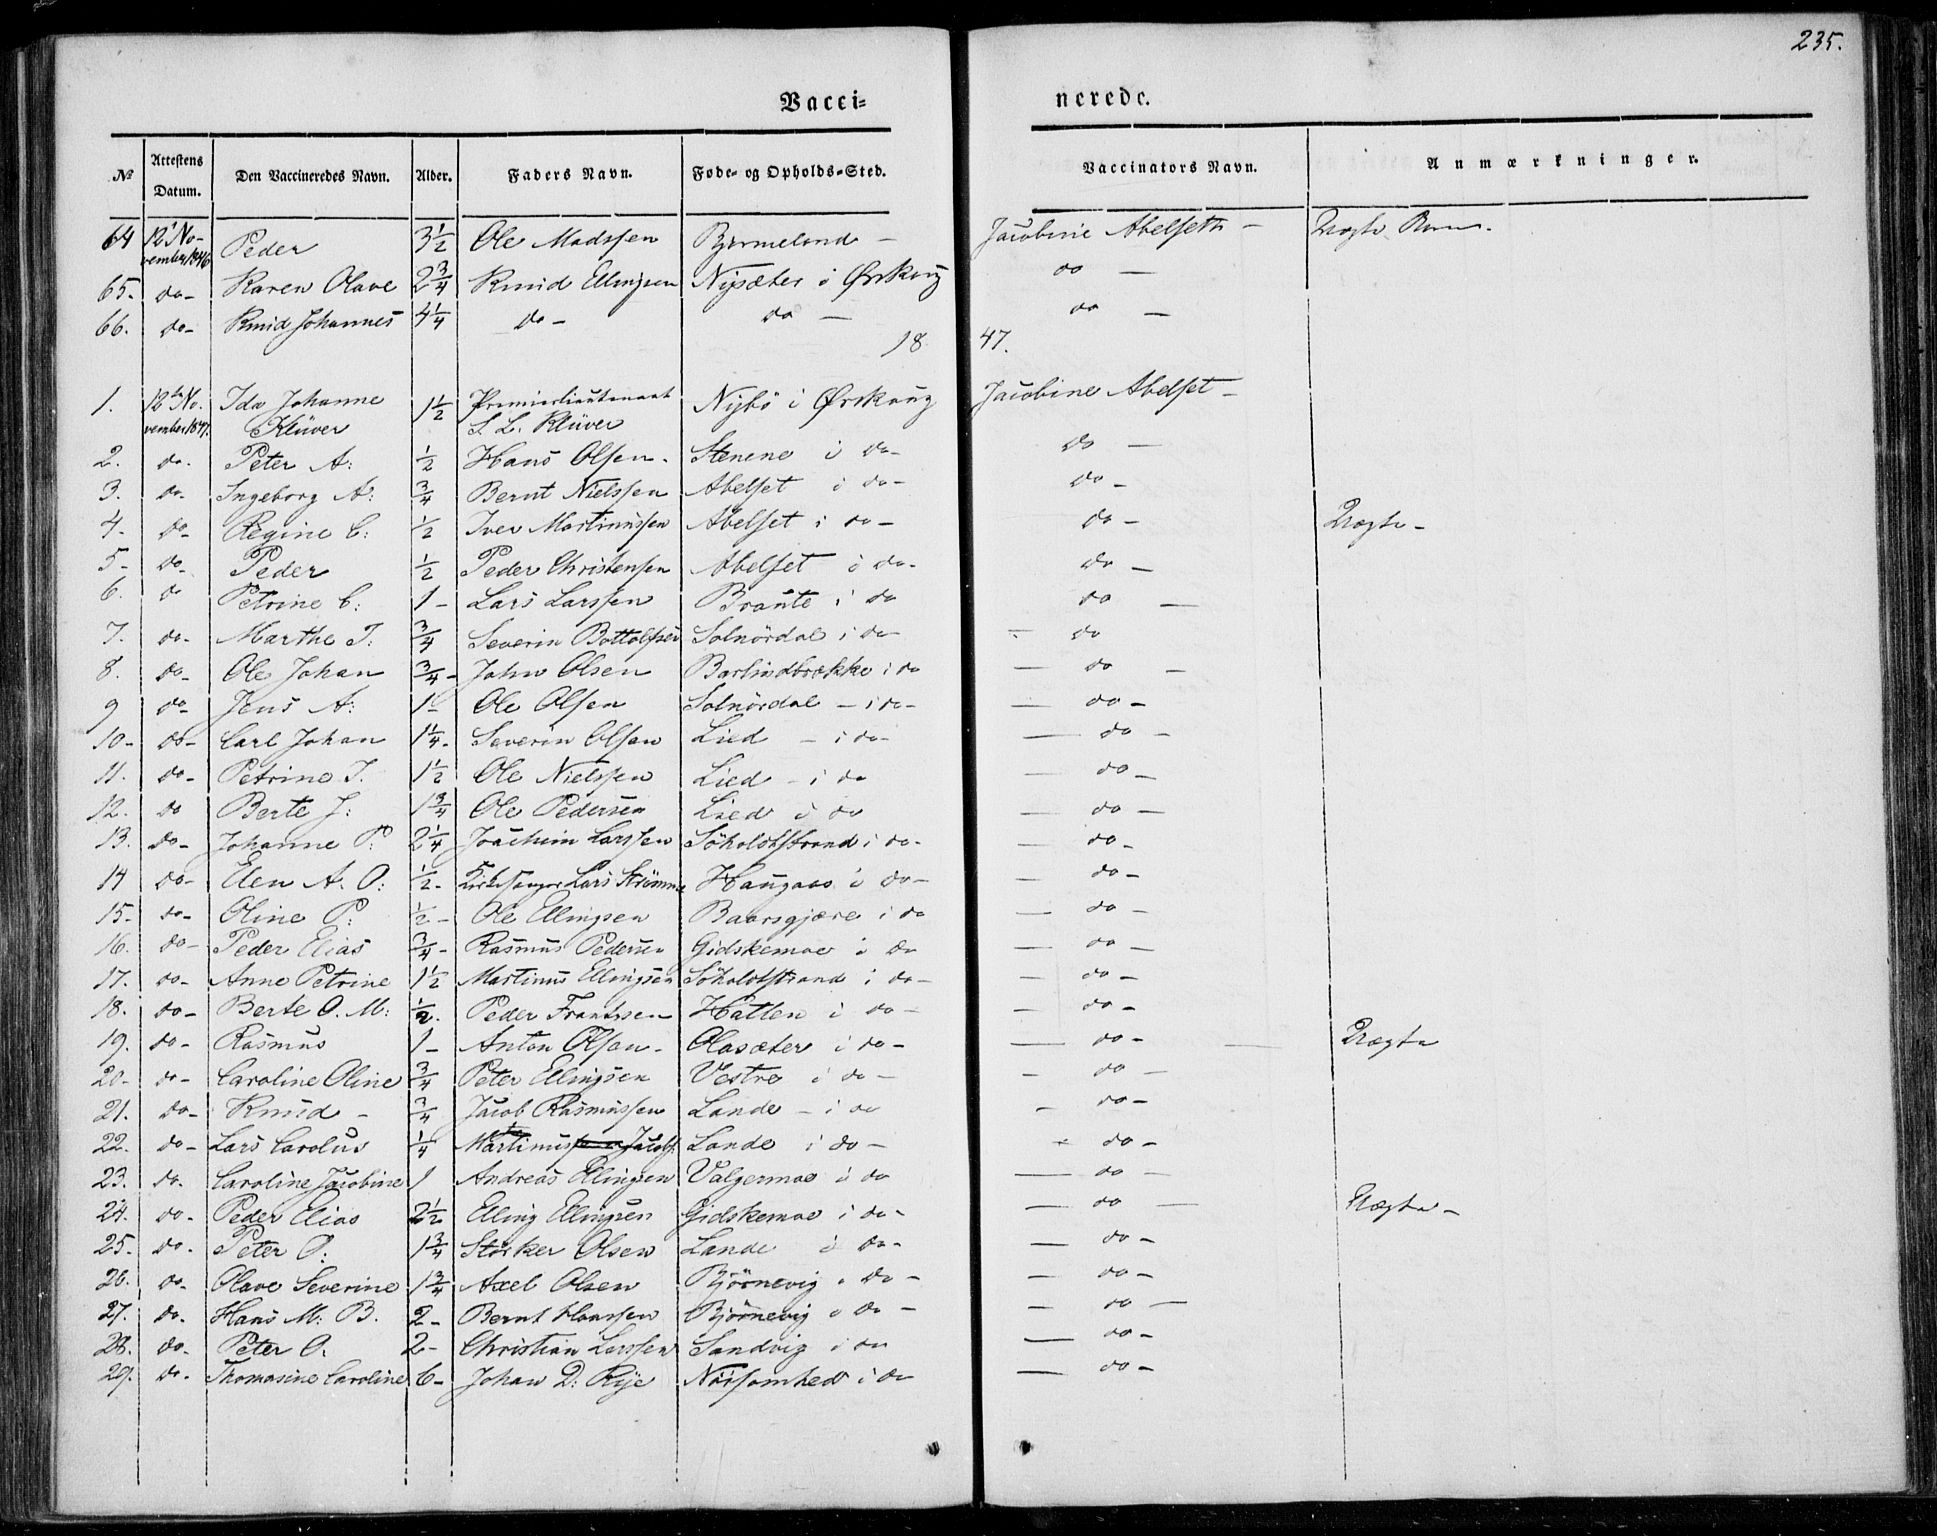 235.
Vacci= nerede.
No Attestens Datum. Den Vaccineredes Navn. Alder. Faders Navn. Føde- og Opholds-Sted. Vaccinators Navn. Anmærkninger.
64 12' November 1846 Peder 3½ Ole Madssen Bjermeland - Jacobine Abelseth - Uægte Barn.
65. do- Karen Olave 2¾ Knud Ellingsen Nysæter i Ørskoug do -
66. do- Knud Johannes 4¼ do- do - do -
18 47.
1. 12te November 1847. Ida Johanne Klüver 1½ Premierlieutenant S. L. Klüver Nybö i Ørskoug Jacobine Abelset -
2. do. Peter A: ½ Hans Olsen. Stenene i do- do -
3. do- Ingeborg A: ¾ Bernt Nielssen Abelset i do- do-
4. do- Regine C: ½ Iver Martinussen Abelset i do- do- Uægte-
5- do- Peder ½ Peder Christensen Abelset i do- do -
6. do Petrine C: 1- Lars Larssen Braute i do do -
7. do- Marthe I: ¾ Severin Bottolfsen Solnördal i do- - do
8. do- Ole Johan ¾- John Olsen Barlindbrække i do - do -
9 do- Jens A: 1- Ole Olsen Solnördal - i do- - do -
10- do- Carl Johan 1¼- Severin Olsen Lied - i do- - do -
11. do- Petrine I. 1½ Ole Nielssen Lied - i do - do -
12. do Berte J: 1¾ Ole Pedersen Lied i do - do -
13. do- Johanne P: 2¼ Joachim Larssen Söholdtstrand i do- - do-
14 do- Elen A. O: ½- Kirkesanger Lars Strömme Haugaas i do- - do-
15- do- Oline P: ½- Ole Ellingsen Baarsgjære i do - do -
16. do- Peder Elias ¾- Rasmus Pedersen Gidskemoe i do - do -
17. do- Anne Petrine 1½ Martinus Ellingsen Söholdtstrand i do- - do-
18. do- Berte O. M: ½. Peder Frantssen Hatlen i do- - do-
19. do- Rasmus 1- Anton Olsen- Olasæter i do- - do- - Uægte
20- do- Caroline Oline ¾ Peter Ellingsen Vestre i do- - do -
21. do- Knud - ¾ Jacob Rasmussen Lande - i do - do-
22. do- Lars Carolus ¼ Martinus Jacobs. Lande i do- - do-
23. do. Caroline Jacobine 1 Andreas Ellingsen Valgermoe i do - do -
24. do- Peder Elias 2½ Elling Ellingsen Gidskemoe i do- - do - Uægte-
25. do- Peter O: 1¾ Størker Olsen Lande i do- - do-
26. do- Olave Severine 1¾ Axel Olsen Bjørnevig i do- - do-
27. do. Hans M: B. 2- Bernt Hanssen Bjørnevig i do- - do -
28. do- Peter O. 2- Christian Larssen Sandvig i do - do-
29. do- Thomasine Caroline 6- Johan D: Rye i do - do-